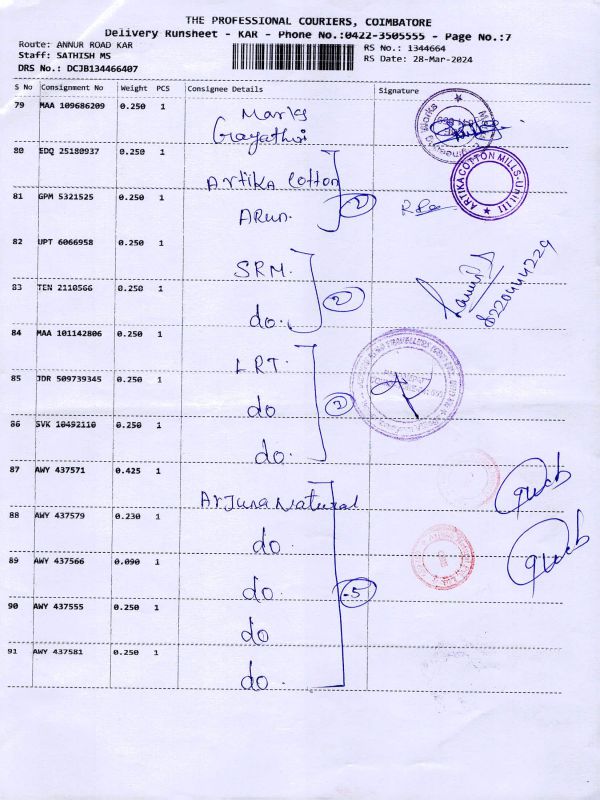 THE PROFESSIONAL COURIERS, COIMBATORE
Delivery Runsheet - KAR - Phone No.:0422-3505555 - Page No.:7
Route: ANNUR ROAD KAR
Staff: SATHISH MS
DRS No.: DCJB134466407
RS No.: 1344664
RS Date: 28-Mar-2024
S No Consignment No Weight PCS Consignee Details Signature
79 MAA 109686209 0.250 1
Gayathri
80 EDQ 25180937 0.250 1 Artika Cotton
ARTIKA COTTON MILLS-UNIT III
81 GPM 5321525 0.250 1 ARun.
2
82 UPT 6066958 0.250 1 SRM.
83 TEN 2110566 0.250 1 do.
2
8220444229
84 MAA 101142806 0.250 1 LRT.
85 JDR 509739345 0.250 1 do
3
86 SVK 10492110 0.250 1 do.
87 AWY 437571 0.425 1 Arjuna Natural
88 AWY 437579 0.230 1 do.
89 AWY 437566 0.090 1 do.
5
90 AWY 437555 0.250 1 do
91 AWY 437581 0.250 1 do.